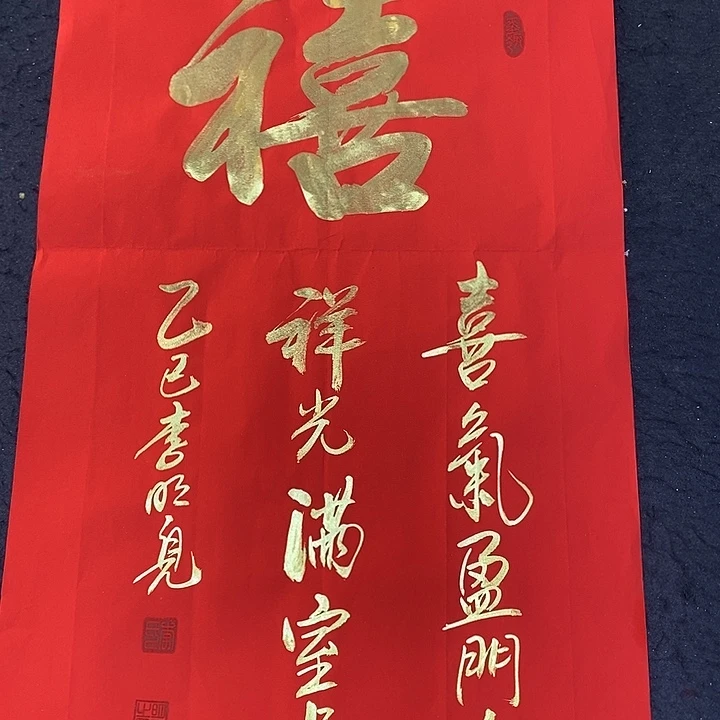 禧
喜氣盈門
祥光滿室
乙巳李明